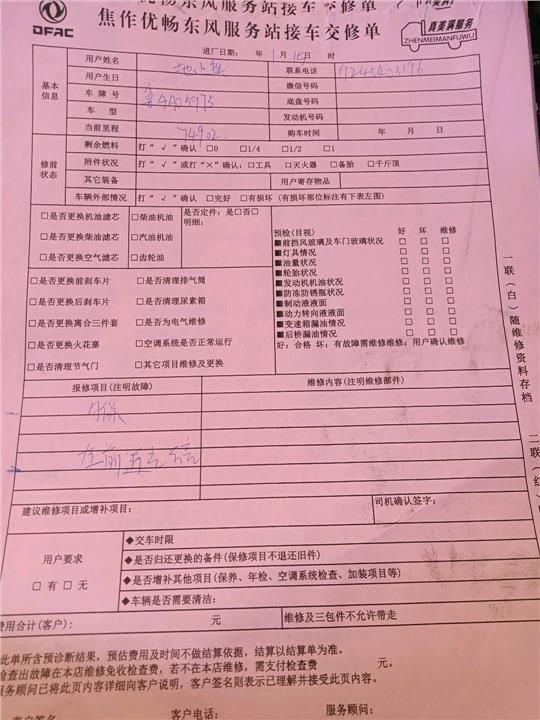 焦作优畅东风服务站接车交修单
焦作优畅东风服务站接车交修单
DFAC
真美满服务
ZHENMEIMANFUWU
进厂日期： 年 1月15日 时
基本信息
用户姓名 联系电话
用户生日 微信号码
车牌号 底盘号码
车型 发动机号码
当前里程 74902 购车时间 年 月 日
修前状态
剩余燃料 打“√”确认 □0 □1/4 □1/2 □1
附件状况 打“√”或打“×”确认：□工具 □灭火器 □备胎 □千斤顶
其它装备 用户寄存物品
车辆外部情况 打“√”确认 □完好 □有损坏（有损坏部位标注有下表左图）
□是否更换机油滤芯 □柴油机油 是否定件：是□否□
明细：
□是否更换柴油滤芯 □汽油机油
□是否更换空气滤芯 □齿轮油
预检(目视) 好 坏 维修
■前挡风玻璃及车门玻璃状况 □ □ □
■灯具情况 □ □ □
■油量状况 □ □ □
■轮胎状况 □ □ □
■发动机机油状况 □ □ □
■防冻防锈瓶状况 □ □ □
■制动液液面 □ □ □
■动力转向液液面 □ □ □
■变速箱漏油情况 □ □ □
■后桥漏油情况 □ □ □
好：合格 坏：有故障需维修维修：用户确认维修
□是否更换前刹车片 □是否清理排气筒
□是否更换后刹车片 □是否清理尿素箱
□是否更换离合三件套 □是否为电气维修
□是否更换火花塞 □空调系统是否正常运行
□是否清理节气门 □其它项目维修及更换
报修项目(注明故障) 维修内容(注明维修部件)
左前
建议维修项目或增补项目： 司机确认签字：
用户要求
□有 □无
◆交车时限
◆是否归还更换的备件(保修项目不退还旧件)
◆是否增补其他项目(保养、年检、空调系统检查、加装项目等)
◆车辆是否需要清洁：
费用合计(客户)： 元 维修及三包件不允许带走
此单所含预诊断结果，预估费用及时间不做结算依据，结算以结算单为准。
检查出故障在本店维修免收检查费，若不在本店维修，需支付检查费 元。
服务顾问已将此页内容详细向客户说明，客户签名则表示已理解并接受此页内容。
客户签名 客户电话： 服务顾问：
一联（白）随维修资料存档
二联（红）